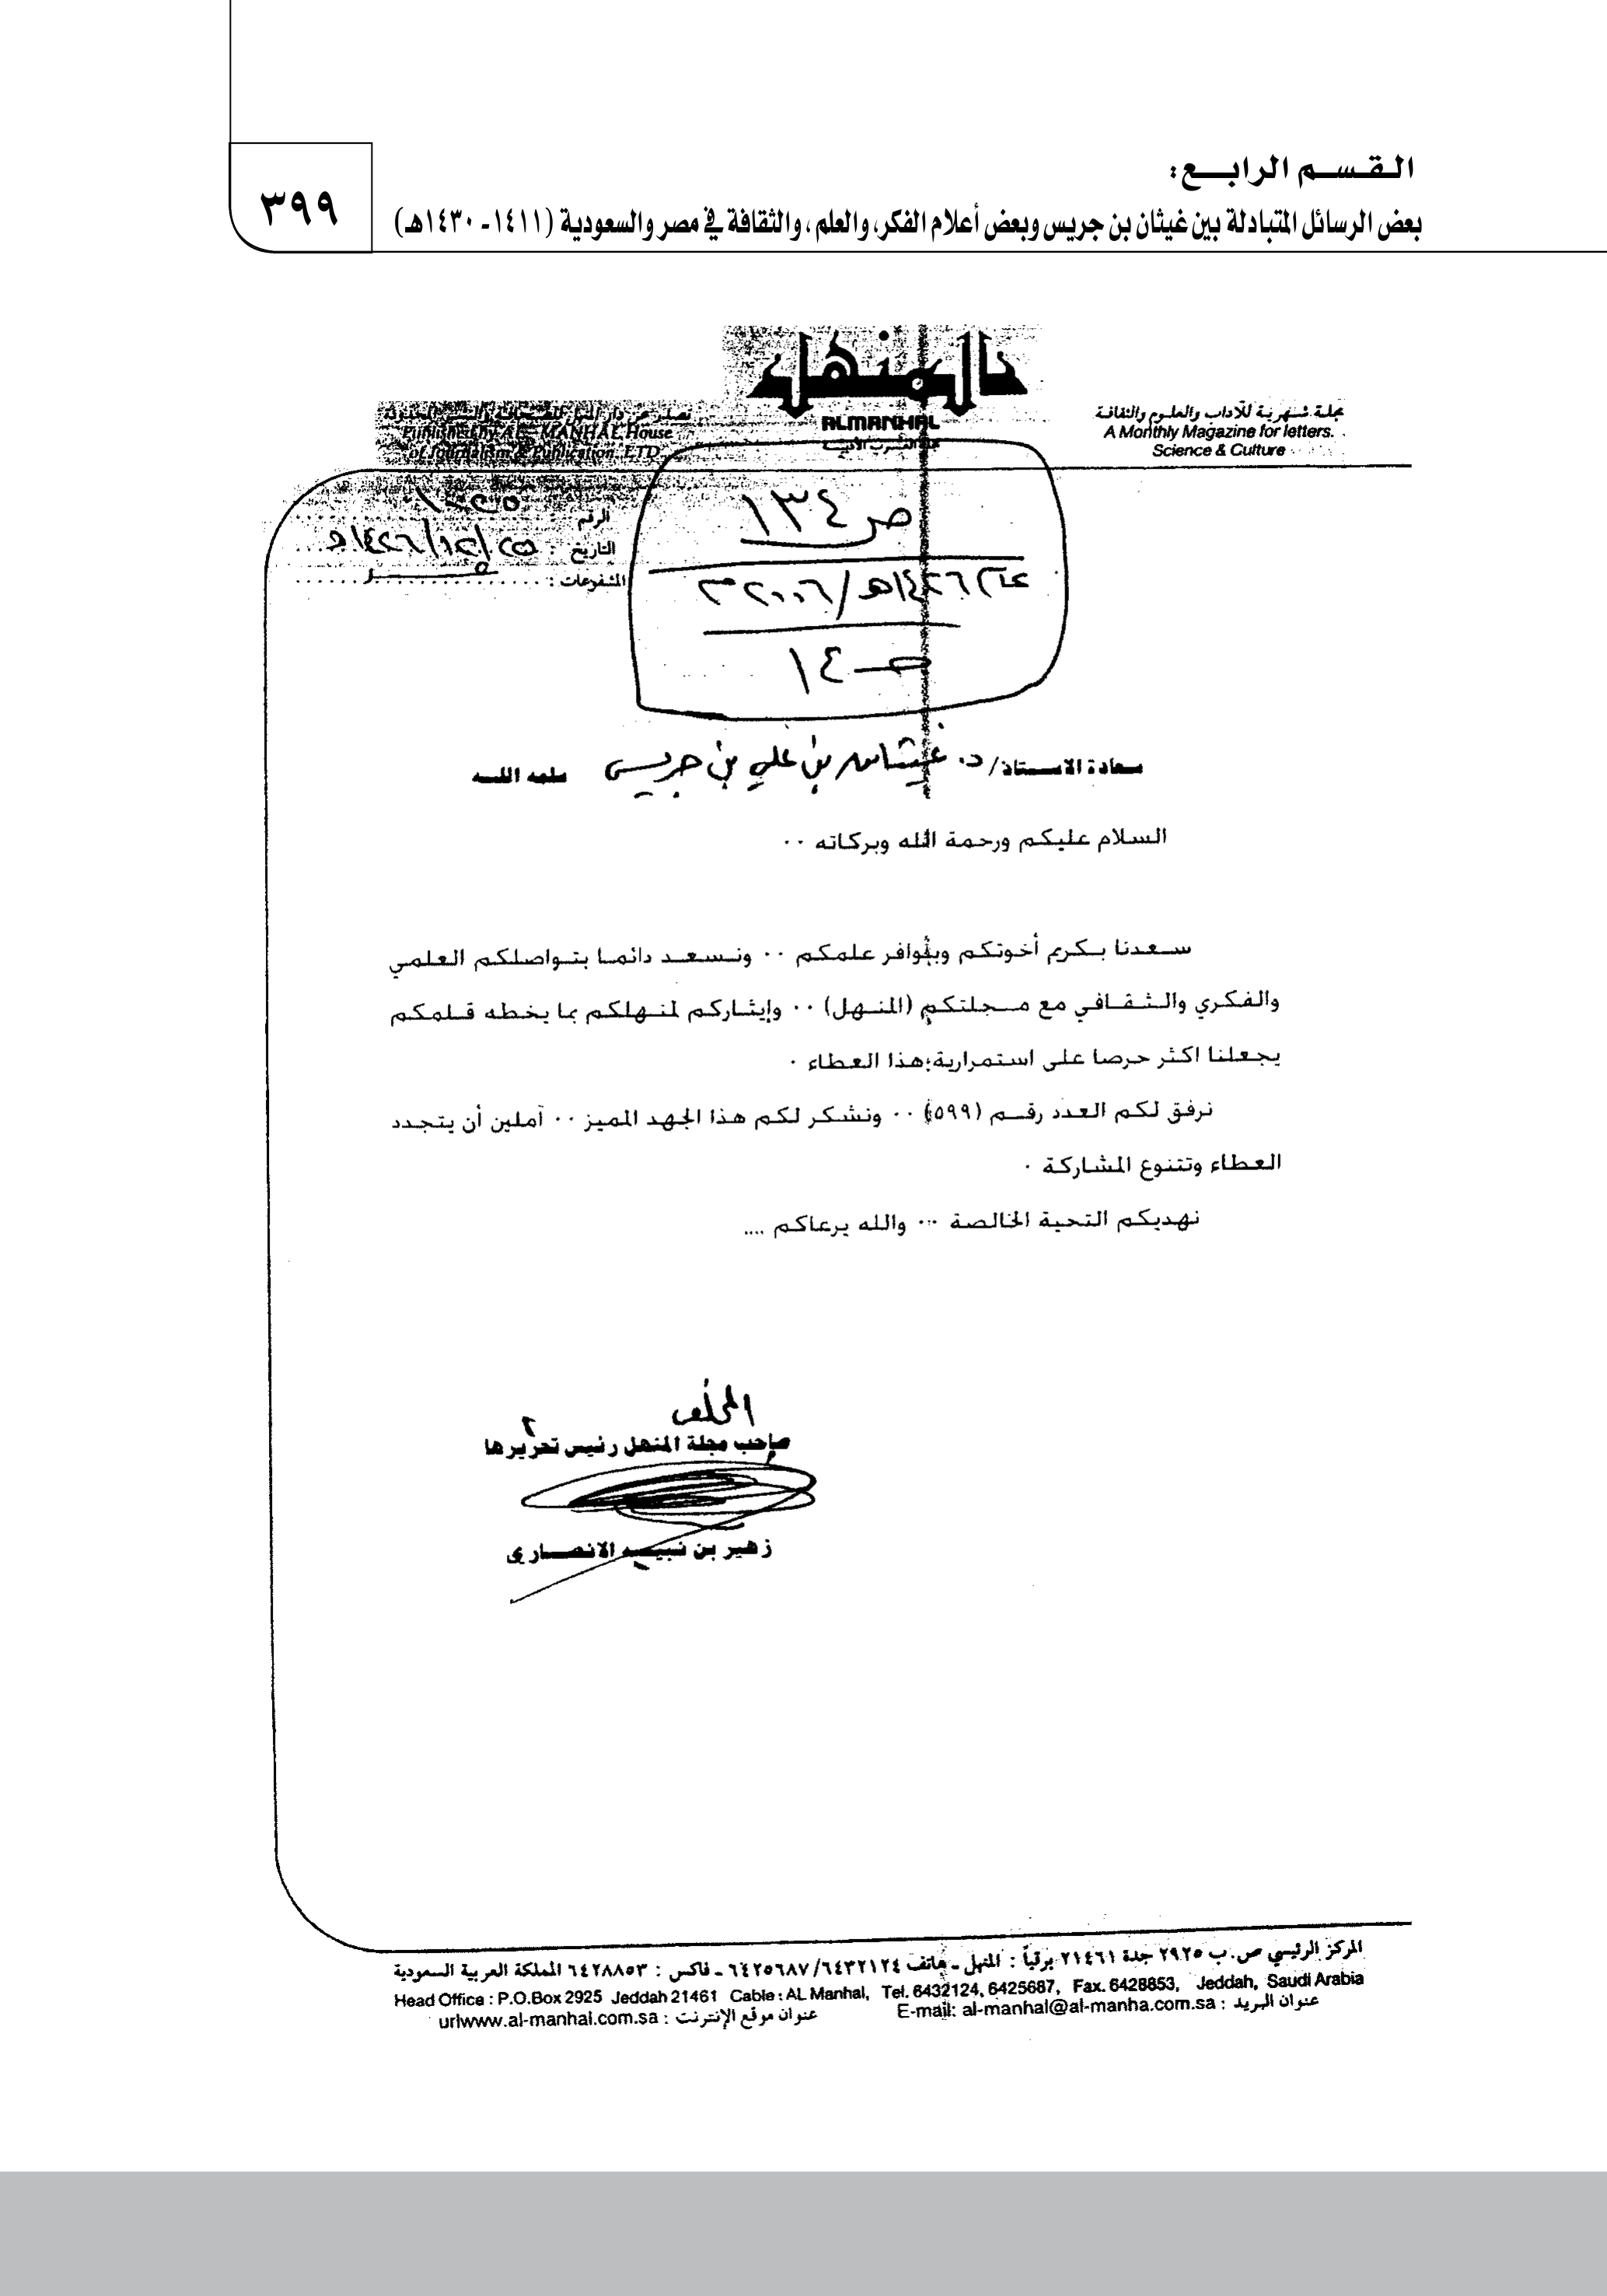 القسم الرابع:
بعض الرسائل المتبادلة بين غيثان بن جريس وبعض أعلام الفكر، والعلم، والثقافة في مصر والسعودية (١٤١١-١٤٣٠هـ)
٣٩٩
المنهل
ALMANHAL
مجلة شهرية للآداب والعلوم والثقافة
A Monthly Magazine for letters.
Science & Culture
تصدر عن دار المنهل للصحافة والنشر المحدودة
Publishe by AL-MANHAL House
of Journalism & Publication LTD
الرقم :
التاريخ : ٢٥/١٢/١٤٢٦هـ
المشفوعات :
ص ١٣٤
١٤٢٦هـ/٢٠٠٦م
١٤
سعادة الاستاذ/ د. غيثان بن علي بن جريس سلمه الله
السلام عليكم ورحمة الله وبركاته ٠٠
سعدنا بكريم أخوتكم وبوافر علمكم ٠٠ ونسعد دائما بتواصلكم العلمي
والفكري والثقافي مع مجلتكم (المنهل) ٠٠ وإيثاركم لمنهلكم بما يخطه قلمكم
يجعلنا اكثر حرصا على استمرارية هذا العطاء ٠
نرفق لكم العدد رقم (٥٩٩) ٠٠ ونشكر لكم هذا الجهد المميز ٠٠ آملين أن يتجدد
العطاء وتتنوع المشاركة ٠
نهديكم التحية الخالصة ٠٠ والله يرعاكم ....
المخلص
صاحب مجلة المنهل رئيس تحريرها
زهير بن نبيه الانصاري
المركز الرئيسي ص.ب ٢٩٢٥ جدة ٢١٤٦١ برقياً : المنهل - هاتف ٦٤٣٢١٢٤/٦٤٢٥٦٨٧ - فاكس : ٦٤٢٨٨٥٣ المملكة العربية السعودية
Head Office : P.O.Box 2925 Jeddah 21461 Cable : AL Manhal, Tel. 6432124, 6425687, Fax. 6428853, Jeddah, Saudi Arabia
عنوان البريد : E-mail: al-manhal@al-manha.com.sa
عنوان موقع الإنترنت : urlwww.al-manhal.com.sa